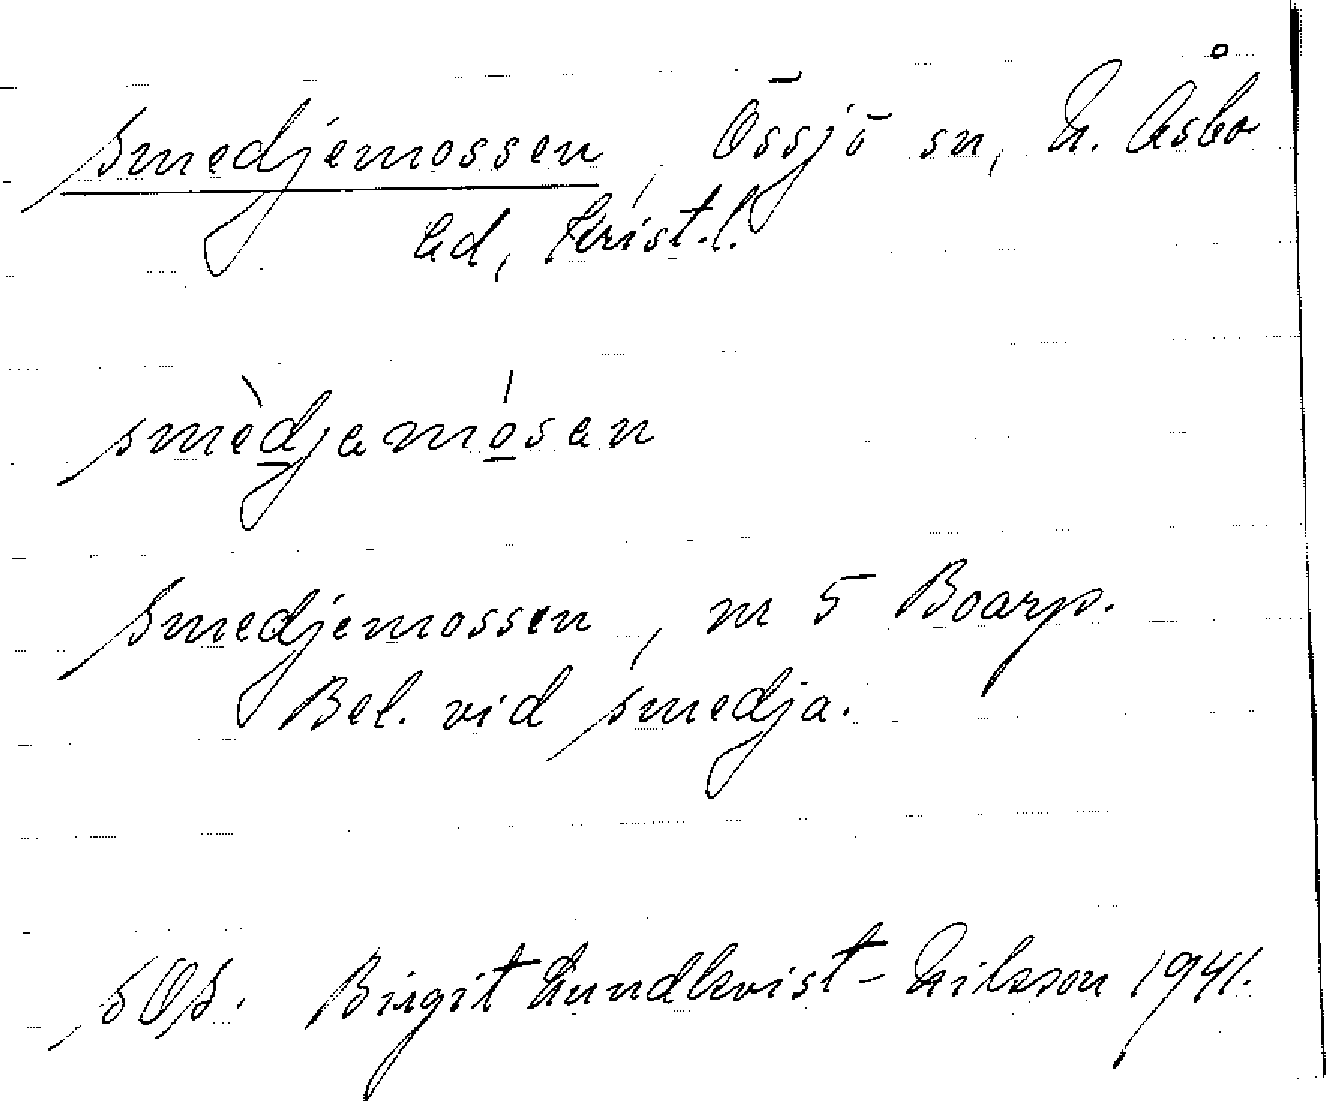 Smedjemossen, Össjö sn, N. Åsbo
hd, Krist. l.
smèdjamósen
Smedjemossen, m 5 Boarp.
Bel. vid smedja.
Birgit Lundkvist-Nilsson 1941.